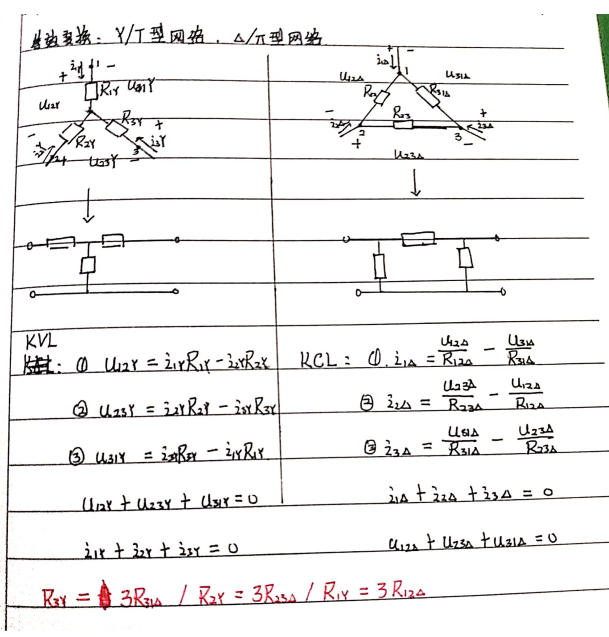 等效变换: Y/T型网络, △/π型网络
i1Y 1 -
+ R1Y U31Y
U12Y
R2Y R3Y +
- i2Y 2 + U23Y - 3 i3Y
i1△ 1 -
U12△ + U31△
R12 R31△
- R23 +
i2△ 2 3 i3△
+ U23△ -
KVL
: ① U12Y = i1YR1Y - i2YR2Y
② U23Y = i2YR2Y - i3YR3Y
③ U31Y = i3YR3Y - i1YR1Y
U12Y + U23Y + U31Y = 0
i1Y + i2Y + i3Y = 0
KCL: ①. i1△ = U12△/R12△ - U31△/R31△
② i2△ = U23△/R23△ - U12△/R12△
③ i3△ = U31△/R31△ - U23△/R23△
i1△ + i2△ + i3△ = 0
U12△ + U23△ + U31△ = 0
R3Y = 3R31△ / R2Y = 3R23△ / R1Y = 3R12△